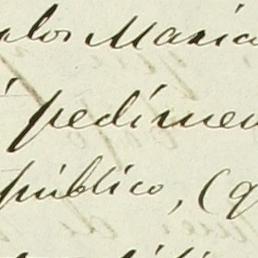 alos Maria
pedimen
público, (q